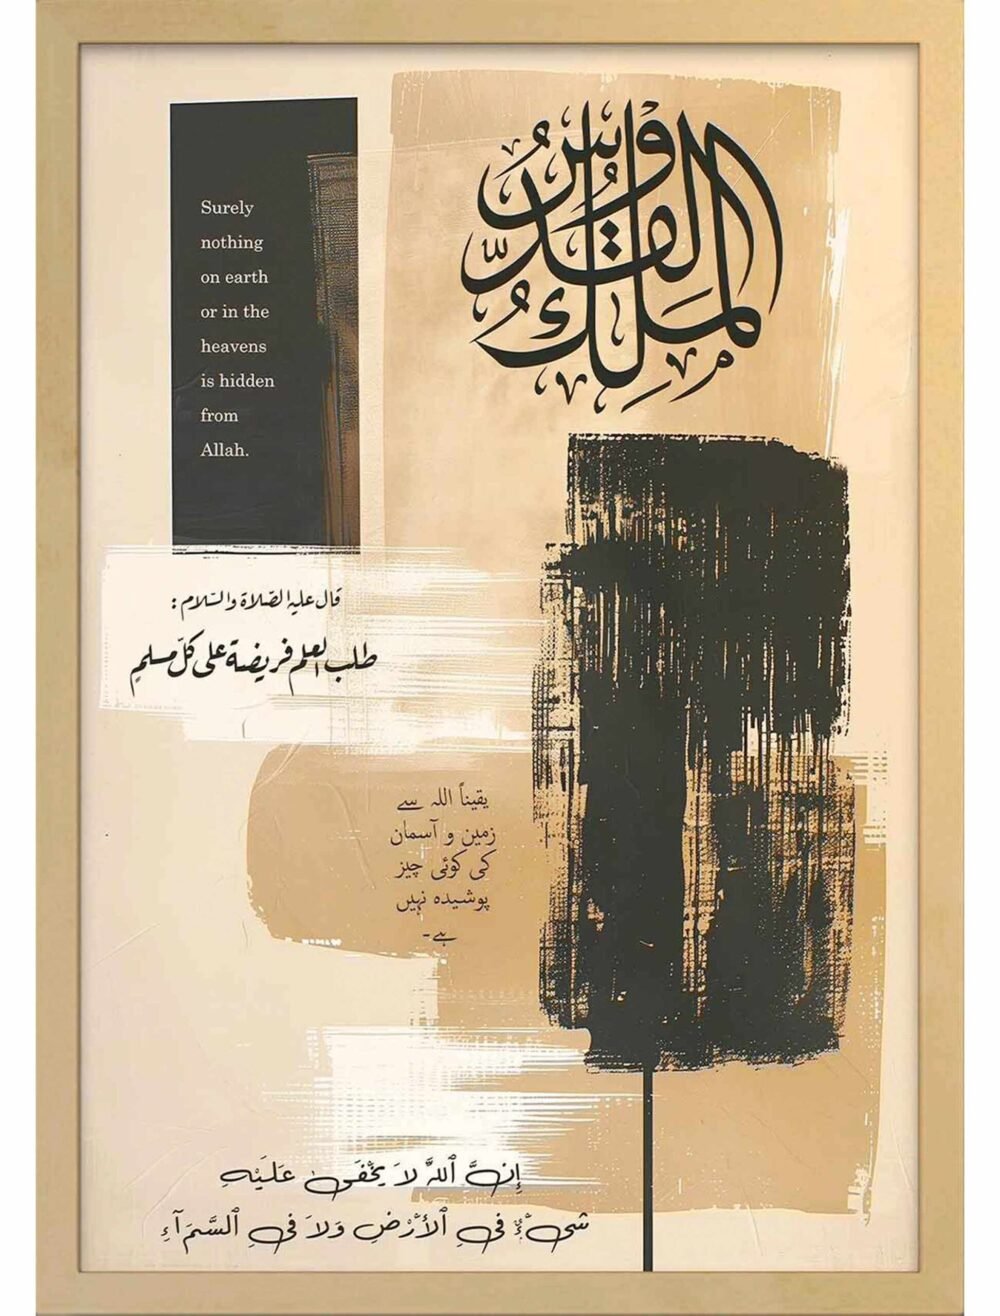 Surely
nothing
on earth
or in the
heavens
is hidden
from
Allah.
الْمَلِكُ الْقُدُّوسُ
قال عليه الصّلاة والسّلام :
طلب العلم فريضة على كلّ مسلمٍ
یقیناً اللہ سے
زمین و آسمان
کی کوئی چیز
پوشیدہ نہیں
ہے۔
إِنَّ ٱللَّهَ لَا يَخْفَىٰ عَلَيْهِ
شَىْءٌ فِى ٱلْأَرْضِ وَلَا فِى ٱلسَّمَآءِ